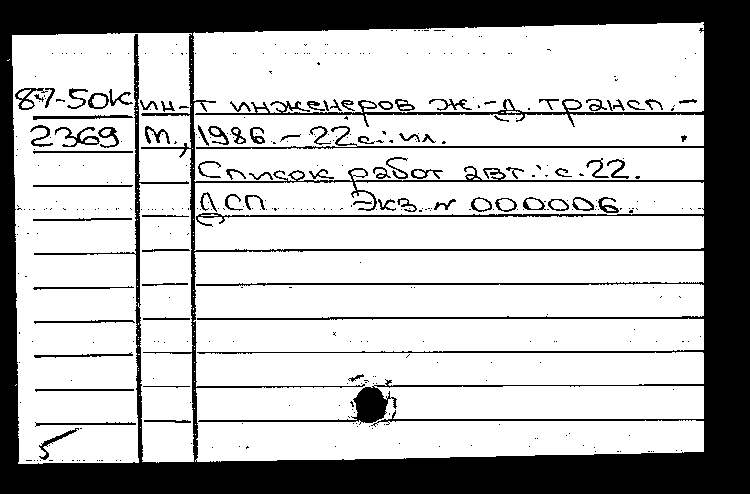 87-50К ин-т инженеров ж.-д. трансп.-
2369 М., 1986.- 22 с.: ил.
Список работ авт.: с. 22.
ДСП. Экз. № 000006.
5